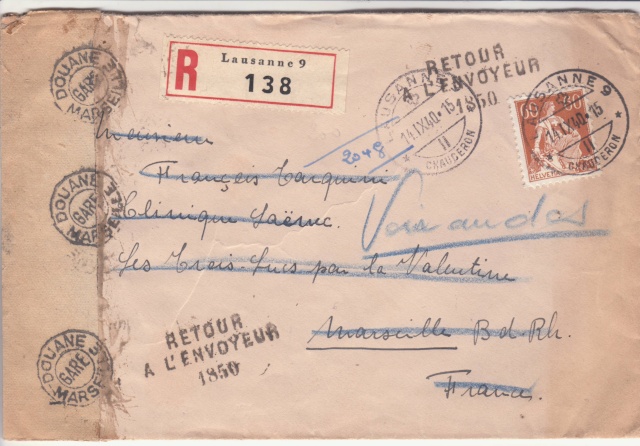 R
Lausanne 9
138
RETOUR
A L'ENVOYEUR
1850
LAUSANNE 9
14.IX.40.-15
II
CHAUDERON
LAUSANNE 9
14.IX.40.-15
II
CHAUDERON
60 60
DOUANE
GARE
MARSEILLE
DOUANE
GARE
MARSEILLE
DOUANE
GARE
MARSEILLE
2048
Monsieur
François Tarquini
Clinique Laënnec
Voir au dos
Les Trois-Lucs par la Valentine
Marseille Bd. Rh.
France.
RETOUR
A L'ENVOYEUR
1850